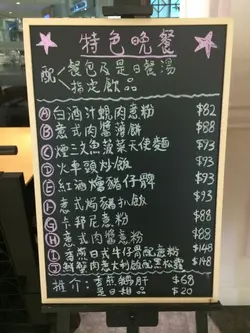 特色晚餐
配 餐包及是日餐湯
指定飲品
A 白酒汁蜆肉意粉 $82
B 意式肉醬薄餅 $88
C 煙三文魚菠菜天使麵 $93
D 火車頭炒飯 $93
E 紅酒燴豬仔髀 $93
F 意式焗豬扒飯 $88
G 卡邦尼意粉 $88
H 意式肉醬意粉 $88
I 香煎日式牛仔骨配意粉 $148
J 意大利飯配黑松露 $148
推介: 香煎鵝肝 $68
是日甜品 $20